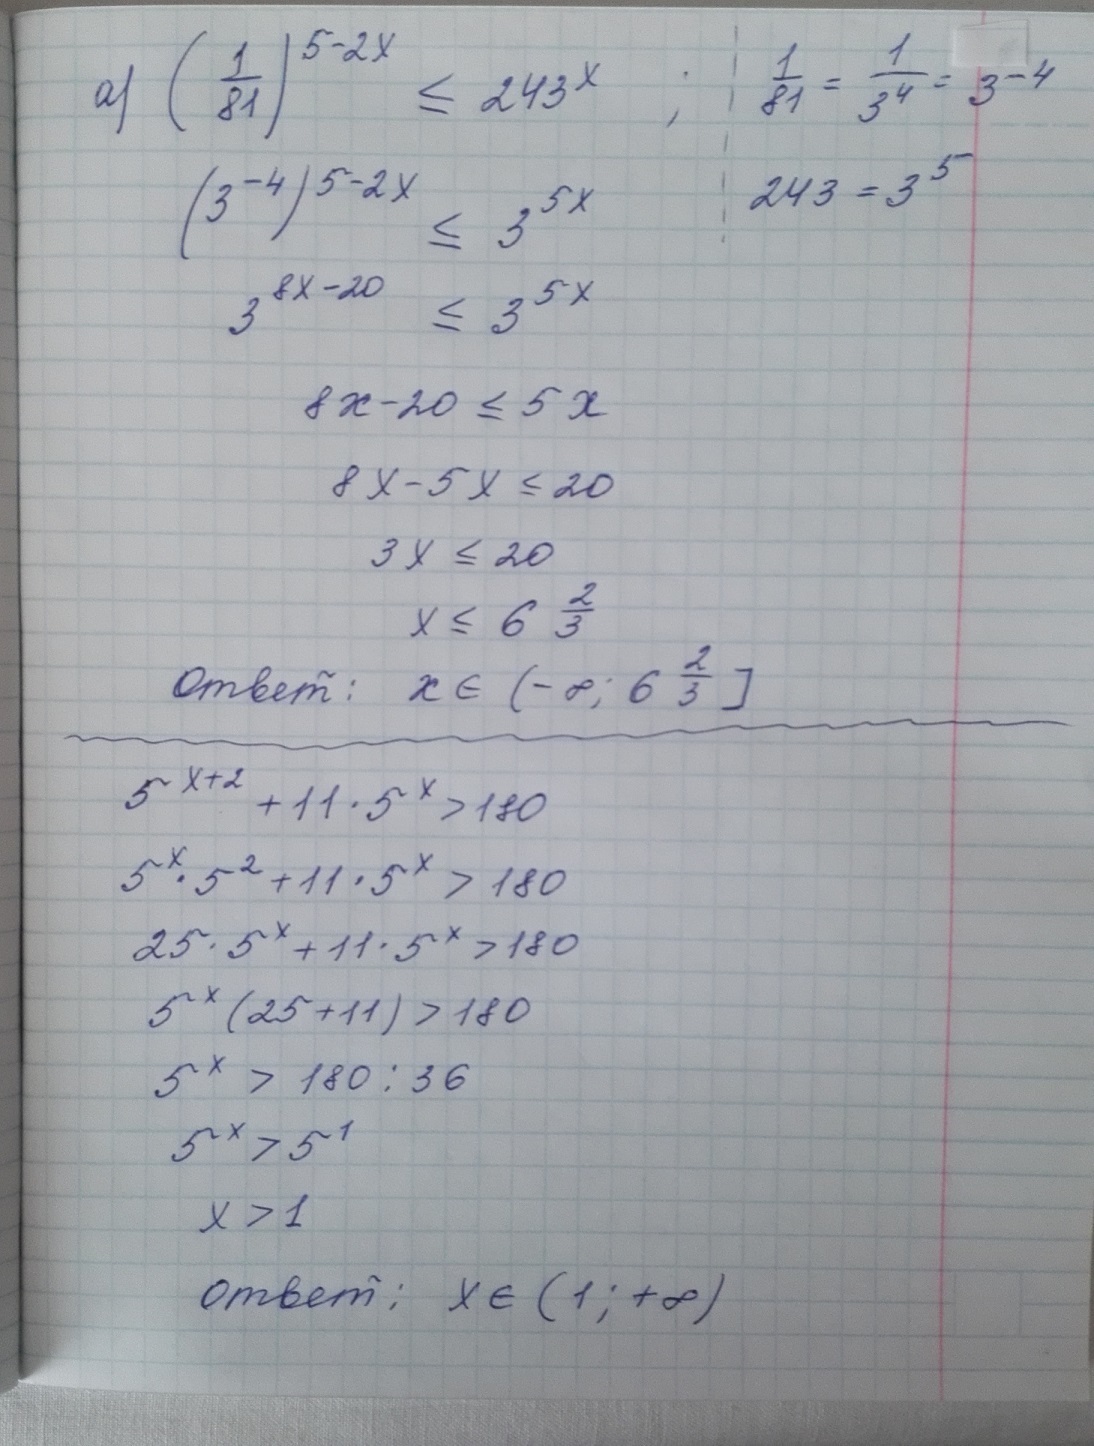 а) (1/81)^(5-2x) ≤ 243^x ; 1/81 = 1/3^4 = 3^-4
(3^-4)^(5-2x) ≤ 3^5x 243 = 3^5
3^(8x-20) ≤ 3^5x
8x-20 ≤ 5x
8x-5x ≤ 20
3x ≤ 20
x ≤ 6 2/3
Ответ: x ∈ (-∞; 6 2/3]
5^(x+2) + 11·5^x > 180
5^x·5^2 + 11·5^x > 180
25·5^x + 11·5^x > 180
5^x (25+11) > 180
5^x > 180 : 36
5^x > 5^1
x > 1
Ответ: x ∈ (1; +∞)